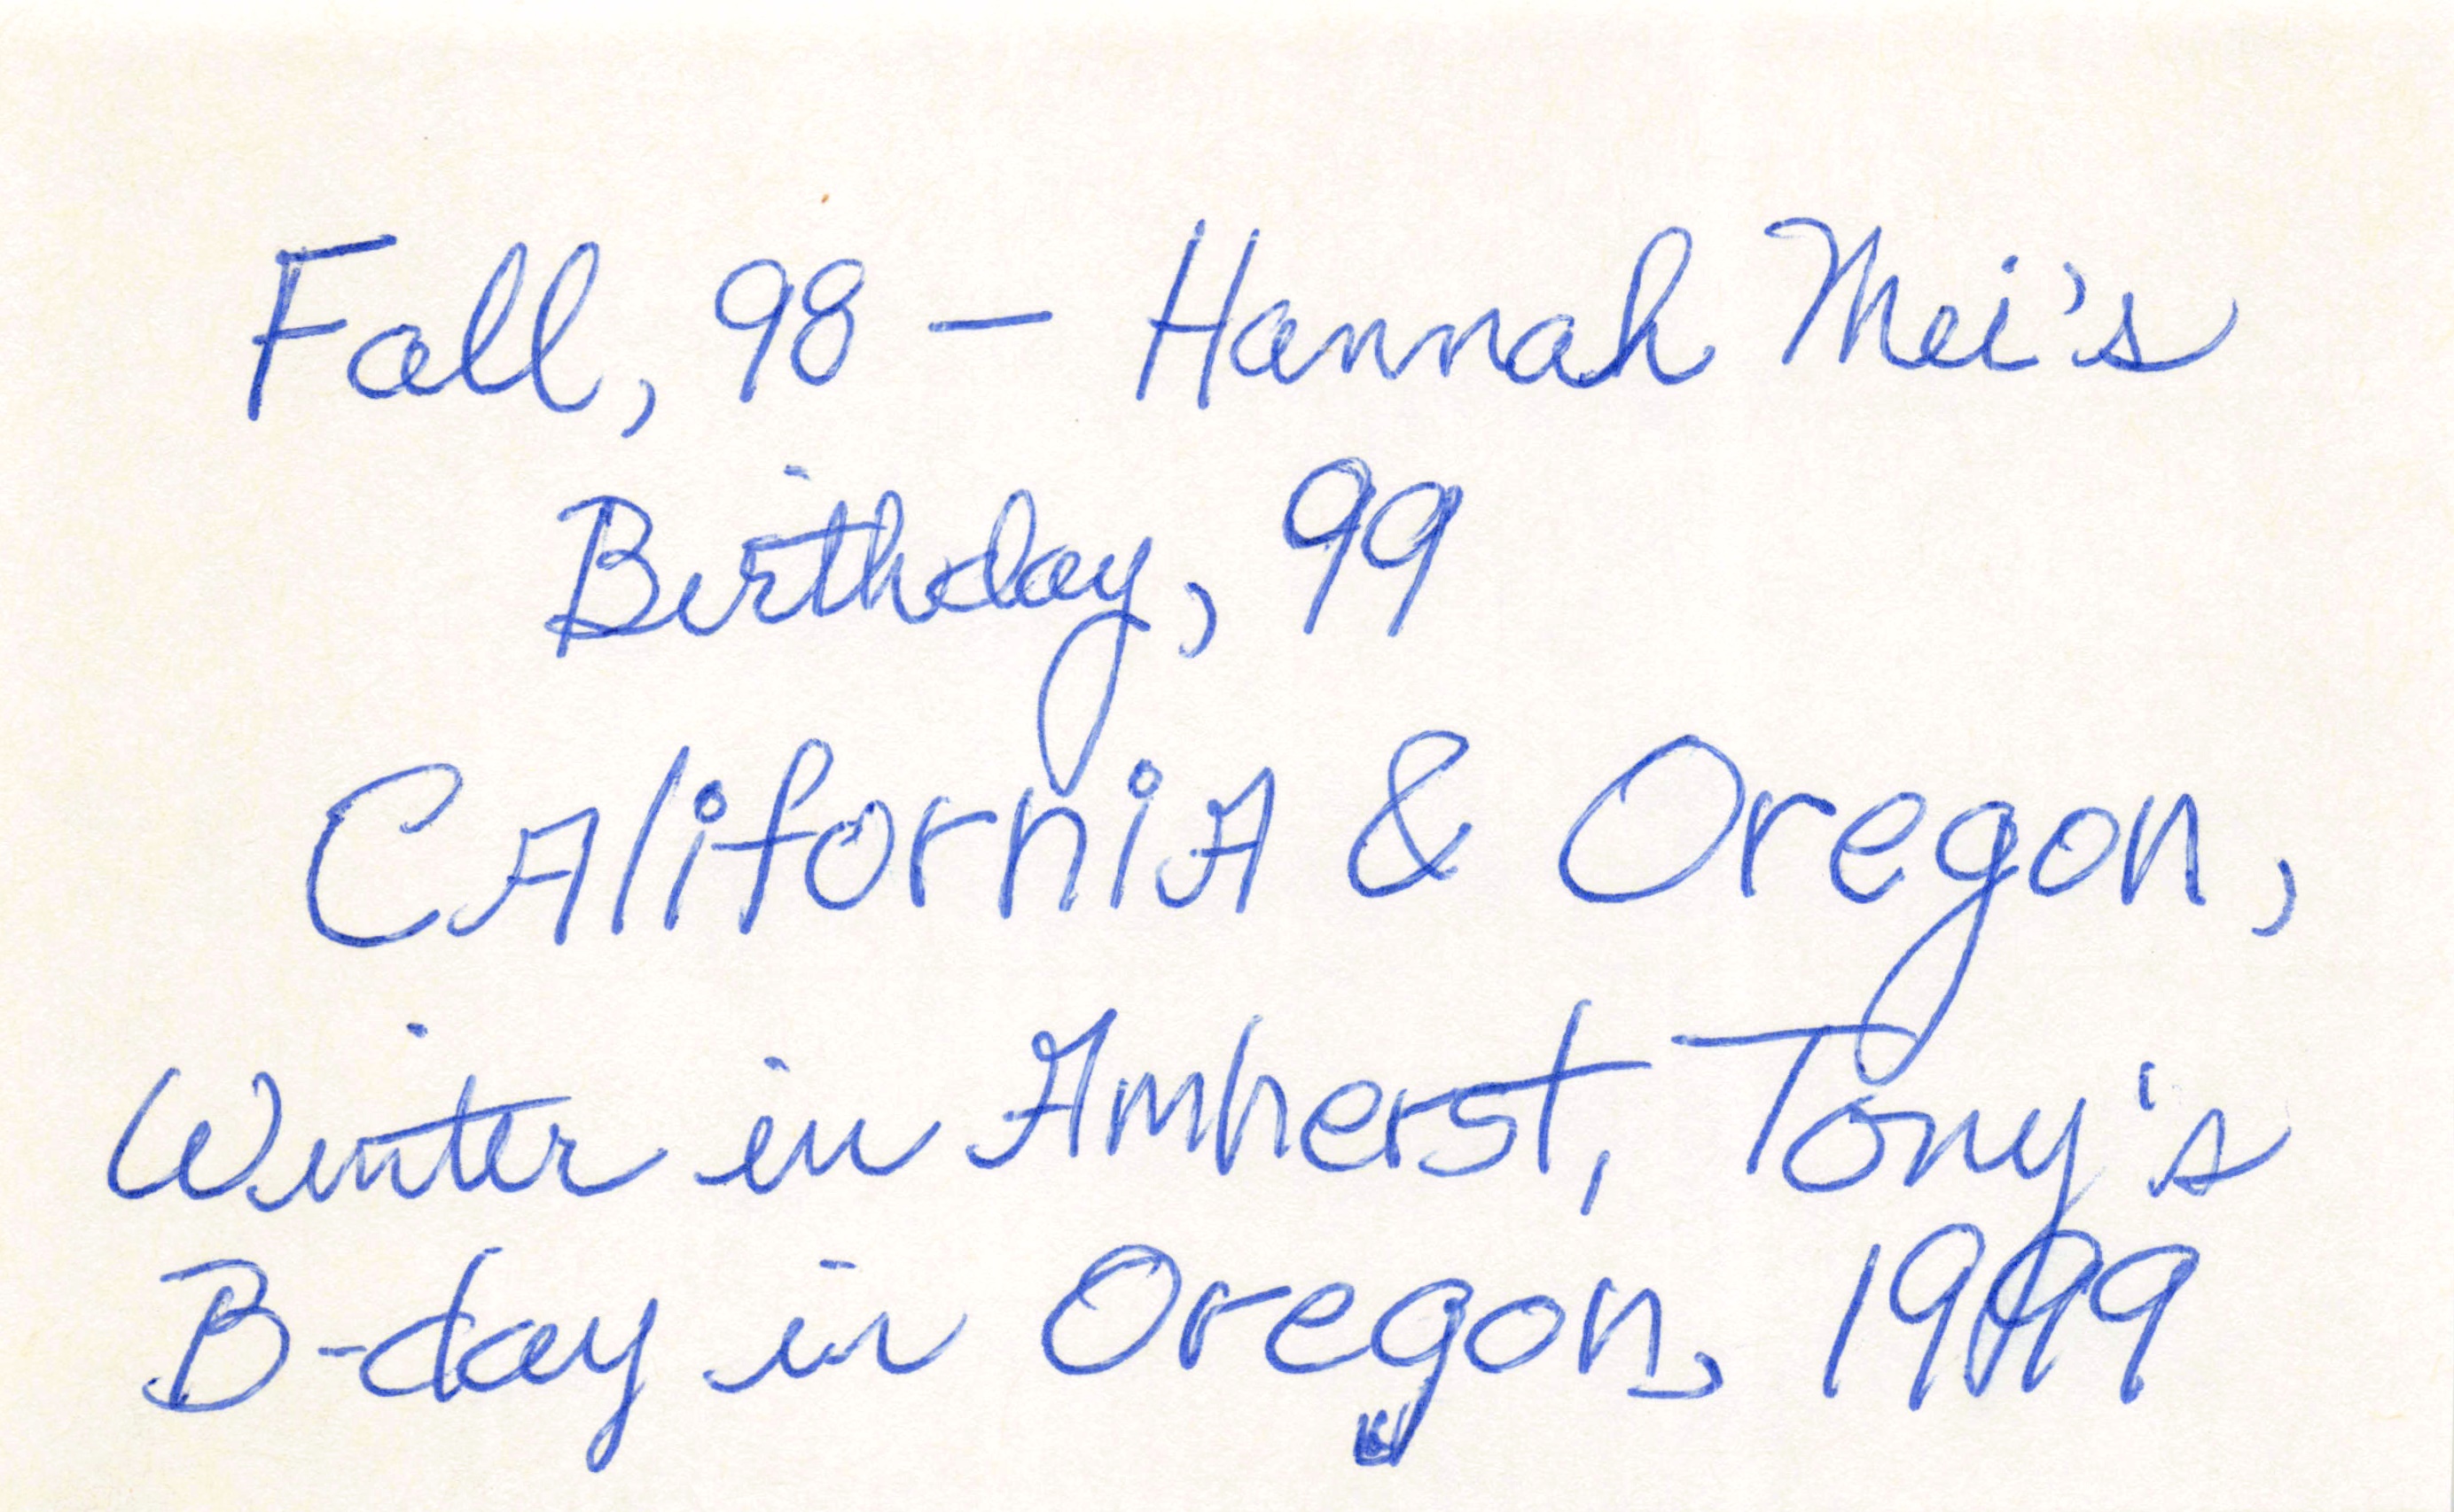 Fall, 98 – Hannah Mei's
Birthday, 99
CAliforniA & Oregon,
Winter in Amherst, Tony's
B-day in Oregon, 1999